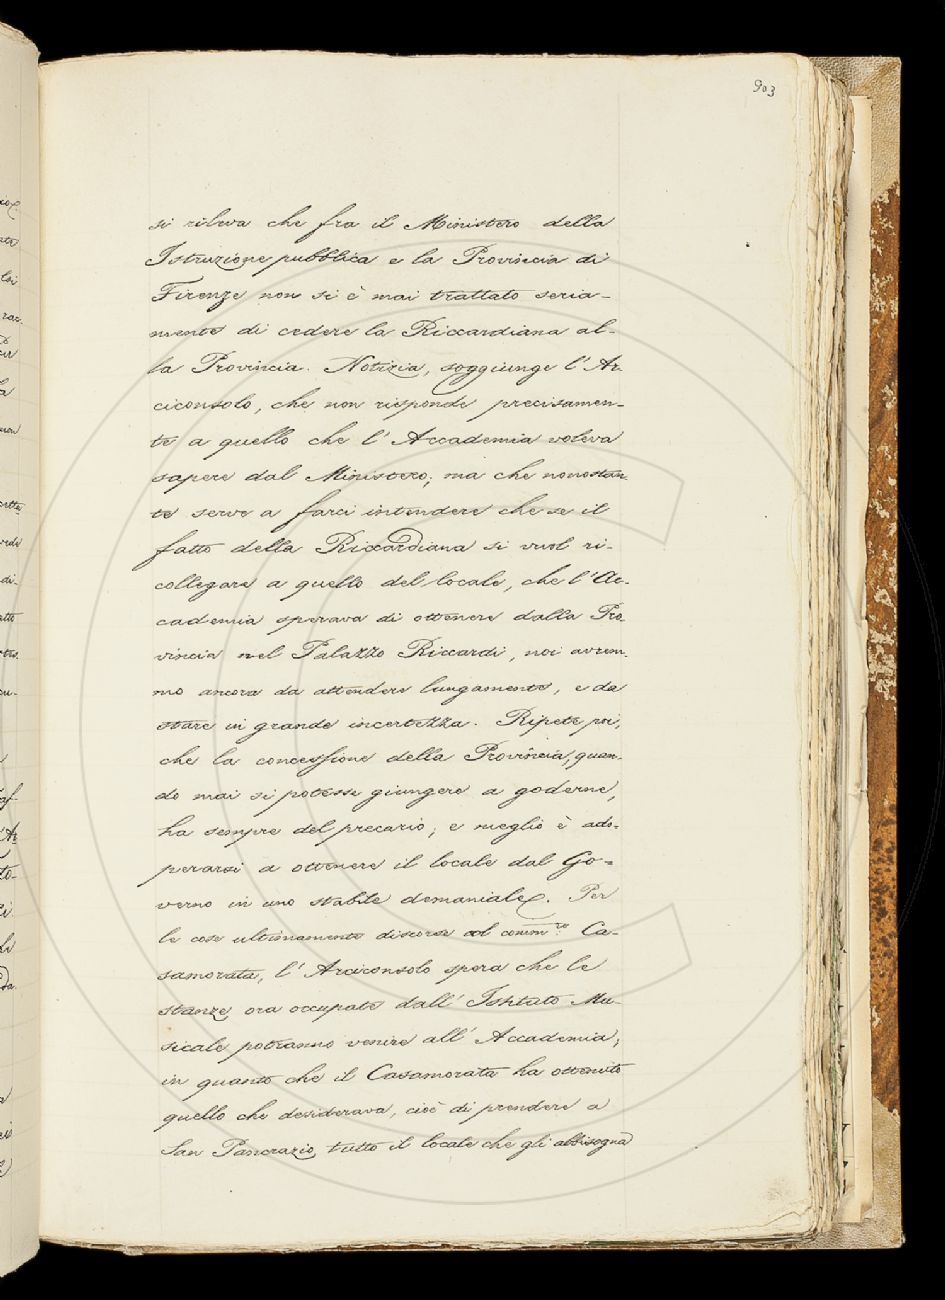 903
si rileva che fra il Ministero della
Istruzione pubblica e la Provincia di
Firenze non si è mai trattato seria-
mente di cedere la Riccardiana al-
la Provincia. Notizia, soggiunge l'Ar
ciconsolo, che non risponde precisamen-
te a quello che l'Accademia voleva
sapere dal Ministero; ma che nonostan-
te serve a farci intendere che se il
fatto della Riccardiana si vuol ri-
collegare a quello del locale, che l'Ac-
cademia sperava di ottenere dalla Pro
vincia nel Palazzo Riccardi, noi avrem-
mo ancora da attendere lungamente, e da
stare in grande incertezza. Ripete poi,
che la concessione della Provincia, quan-
do mai si potesse giungere a goderne,
ha sempre del precario; e meglio è ado=
perarsi a ottenere il locale dal Go=
verno in uno stabile demaniale. Per
le cose ultimamente discorse col comm.re Ca-
samorata, l'Arciconsolo spera che le
stanze ora occupate dall'Istituto Mu-
sicale potranno venire all'Accademia;
in quanto che il Casamorata ha ottenuto
quello che desiderava, cioè di prendere a
San Pancrazio tutto il locale che gli abbisogna